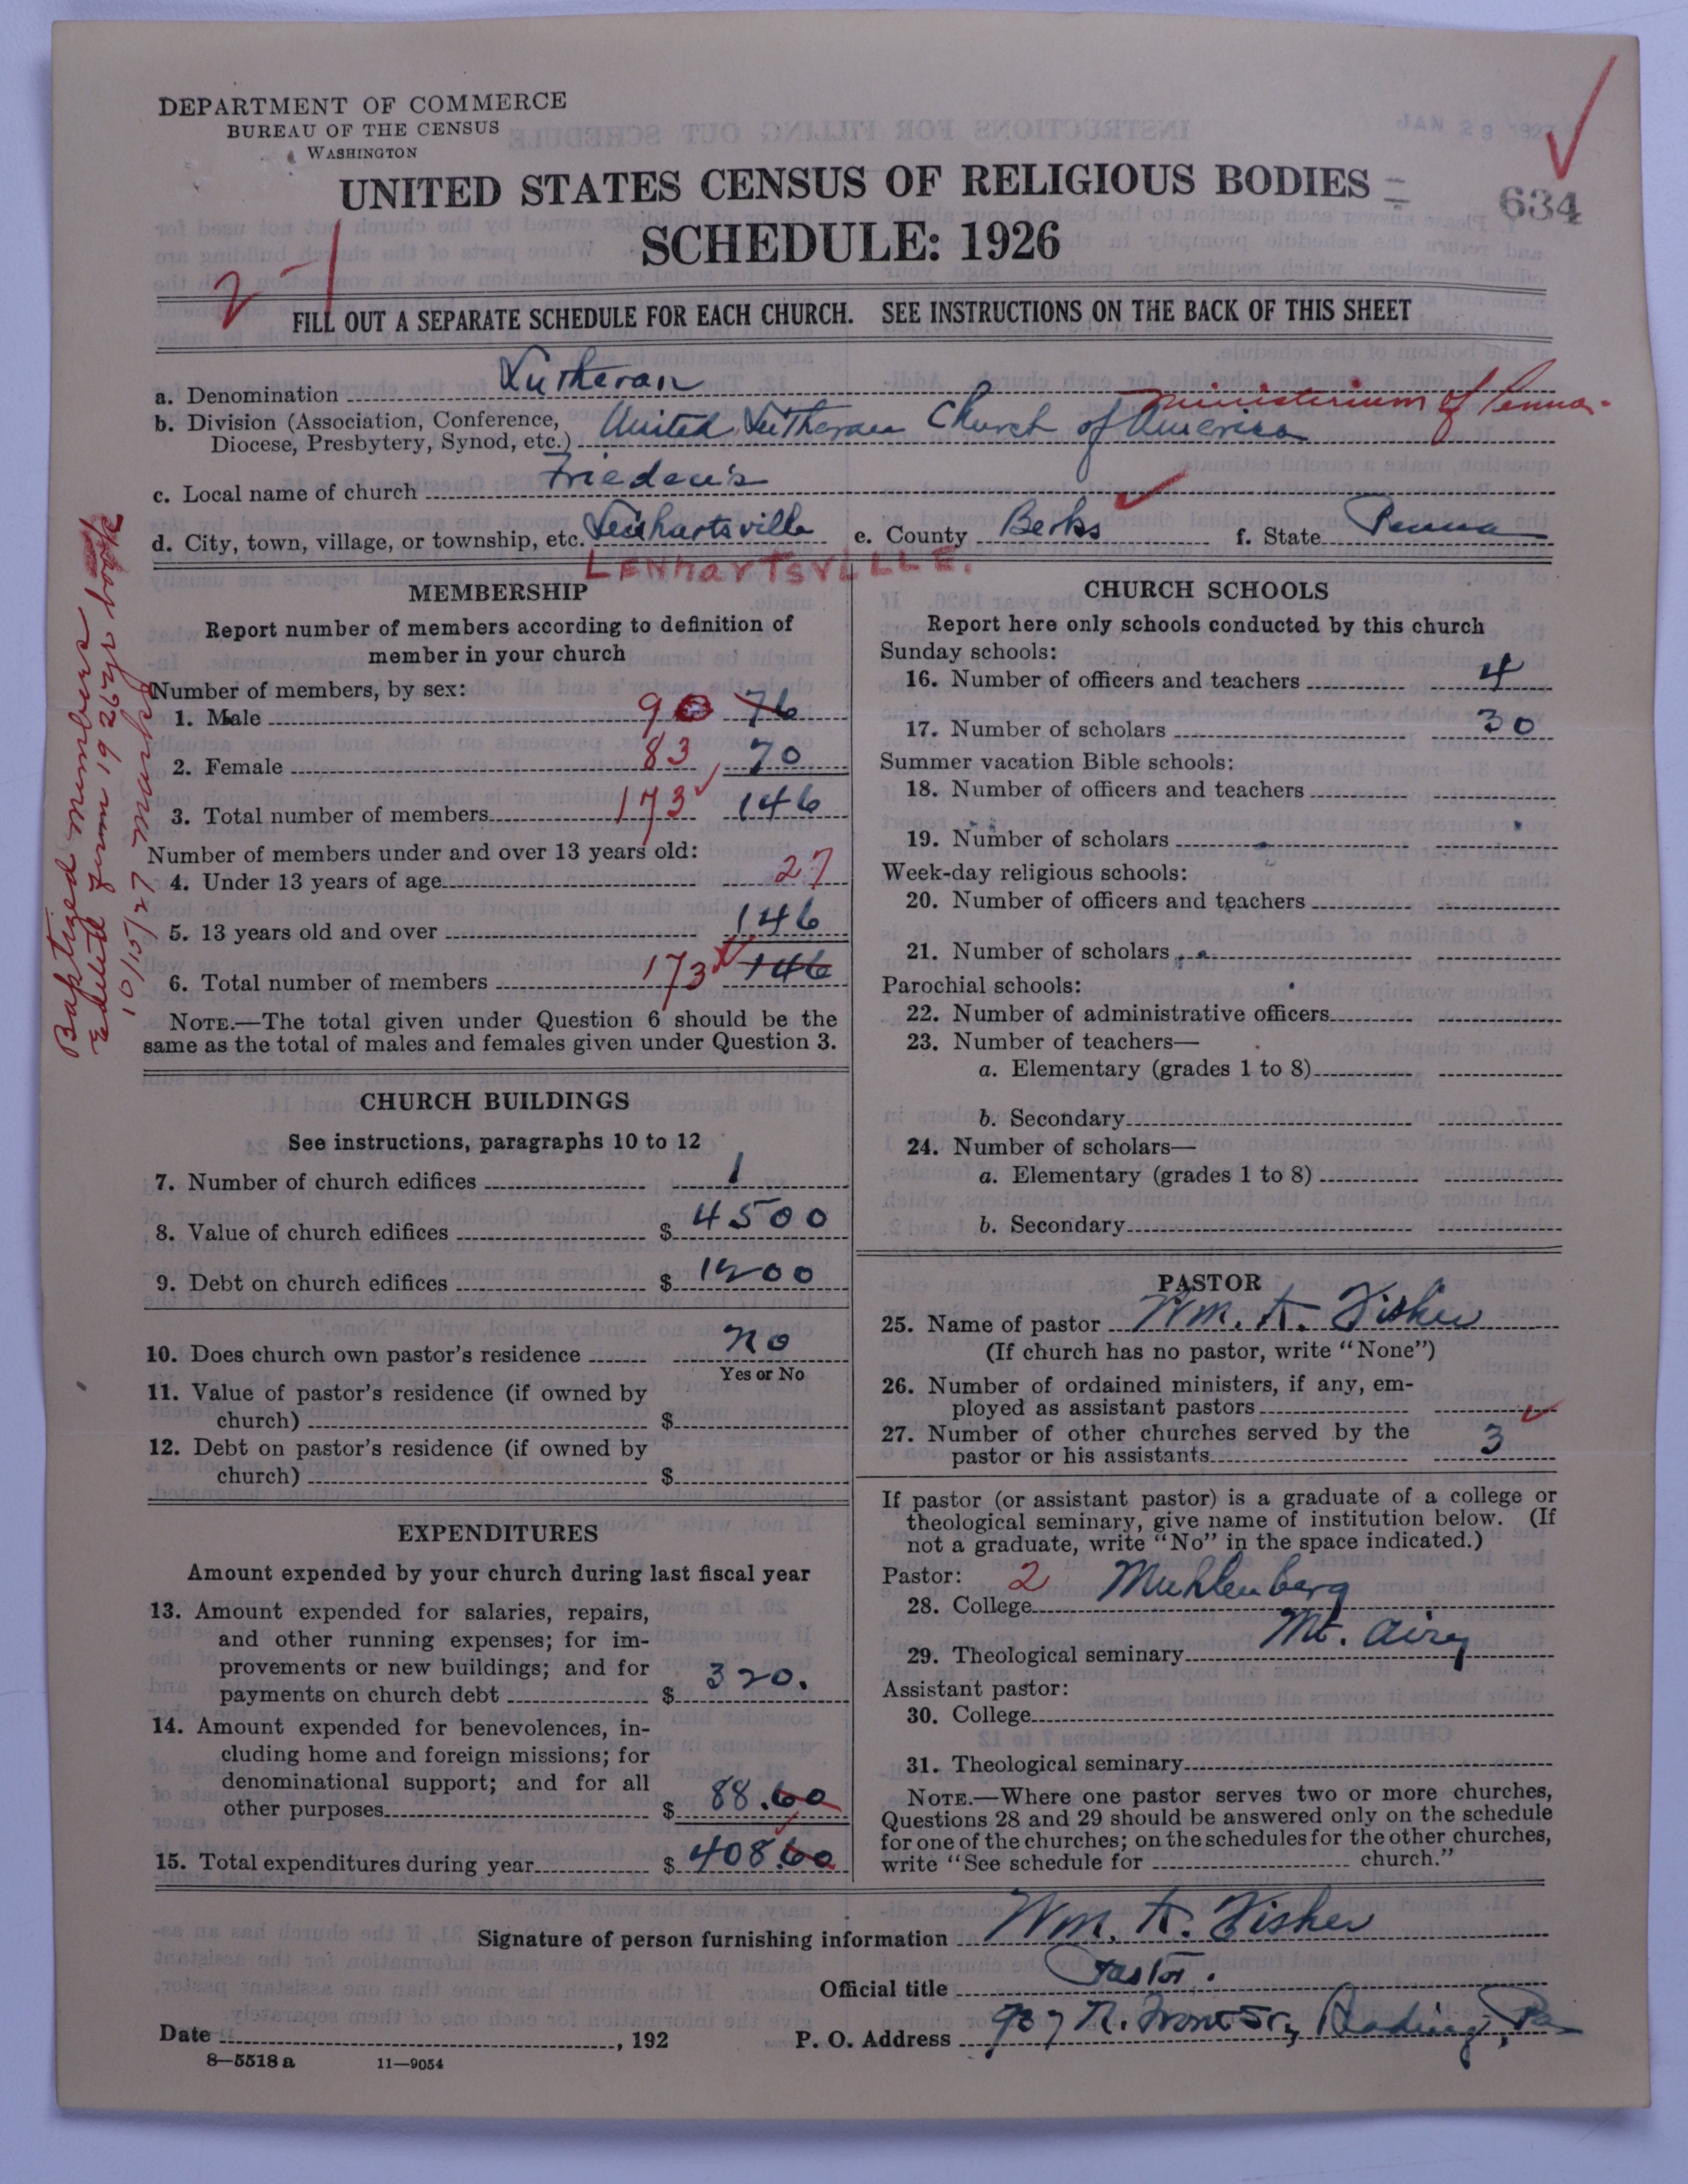 DEPARTMENT OF COMMERCE
BUREAU OF THE CENSUS
WASHINGTON
JAN 29 1927
UNITED STATES CENSUS OF RELIGIOUS BODIES
634
SCHEDULE: 1926
2-1
FILL OUT A SEPARATE SCHEDULE FOR EACH CHURCH. SEE INSTRUCTIONS ON THE BACK OF THIS SHEET
a. Denomination Lutheran
Ministerium of Penna.
b. Division (Association, Conference,
Diocese, Presbytery, Synod, etc.) United Lutheran Church of America
c. Local name of church Frieden's
d. City, town, village, or township, etc. Lenhartsville e. County Berks f. State Penna
LENHARTSVILLE.
Baptized members
Edited from 1927 Year book
10/15/27
MEMBERSHIP
Report number of members according to definition of
member in your church
Number of members, by sex:
1. Male 90 76
2. Female 83 70
3. Total number of members 173 146
Number of members under and over 13 years old:
4. Under 13 years of age 27
5. 13 years old and over 146
6. Total number of members 173 146
NOTE.—The total given under Question 6 should be the
same as the total of males and females given under Question 3.
CHURCH BUILDINGS
See instructions, paragraphs 10 to 12
7. Number of church edifices 1
8. Value of church edifices $ 4500
9. Debt on church edifices $ 1200
10. Does church own pastor's residence no
Yes or No
11. Value of pastor's residence (if owned by
church) $
12. Debt on pastor's residence (if owned by
church) $
EXPENDITURES
Amount expended by your church during last fiscal year
13. Amount expended for salaries, repairs,
and other running expenses; for im-
provements or new buildings; and for
payments on church debt $ 320.
14. Amount expended for benevolences, in-
cluding home and foreign missions; for
denominational support; and for all
other purposes $ 88.60
15. Total expenditures during year $ 408.60
CHURCH SCHOOLS
Report here only schools conducted by this church
Sunday schools:
16. Number of officers and teachers 4
17. Number of scholars 30
Summer vacation Bible schools:
18. Number of officers and teachers
19. Number of scholars
Week-day religious schools:
20. Number of officers and teachers
21. Number of scholars
Parochial schools:
22. Number of administrative officers
23. Number of teachers—
a. Elementary (grades 1 to 8)
b. Secondary
24. Number of scholars—
a. Elementary (grades 1 to 8)
b. Secondary
PASTOR
25. Name of pastor Wm. K. Fisher
(If church has no pastor, write "None")
26. Number of ordained ministers, if any, em-
ployed as assistant pastors
27. Number of other churches served by the
pastor or his assistants 3
If pastor (or assistant pastor) is a graduate of a college or
theological seminary, give name of institution below. (If
not a graduate, write "No" in the space indicated.)
Pastor: 2
28. College Muhlenberg
29. Theological seminary Mt. Airy
Assistant pastor:
30. College
31. Theological seminary
NOTE.—Where one pastor serves two or more churches,
Questions 28 and 29 should be answered only on the schedule
for one of the churches; on the schedules for the other churches,
write "See schedule for church."
Signature of person furnishing information Wm. K. Fisher
Official title Pastor.
Date , 192
P. O. Address 907 N. Front St., Reading, Pa
8—5518 a 11—9054